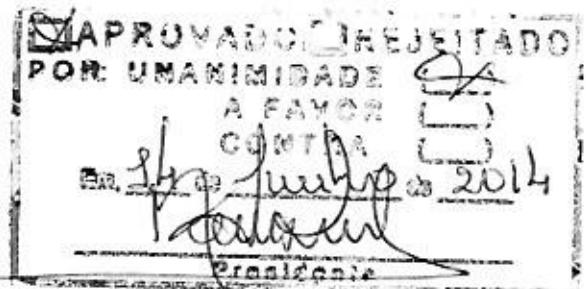 ☒ APROVADO ☐ REJEITADO
POR: UNANIMIDADE (X)
A FAVOR ( )
CONTRA ( )
Em, 14 de Junho de 2014
Presidente